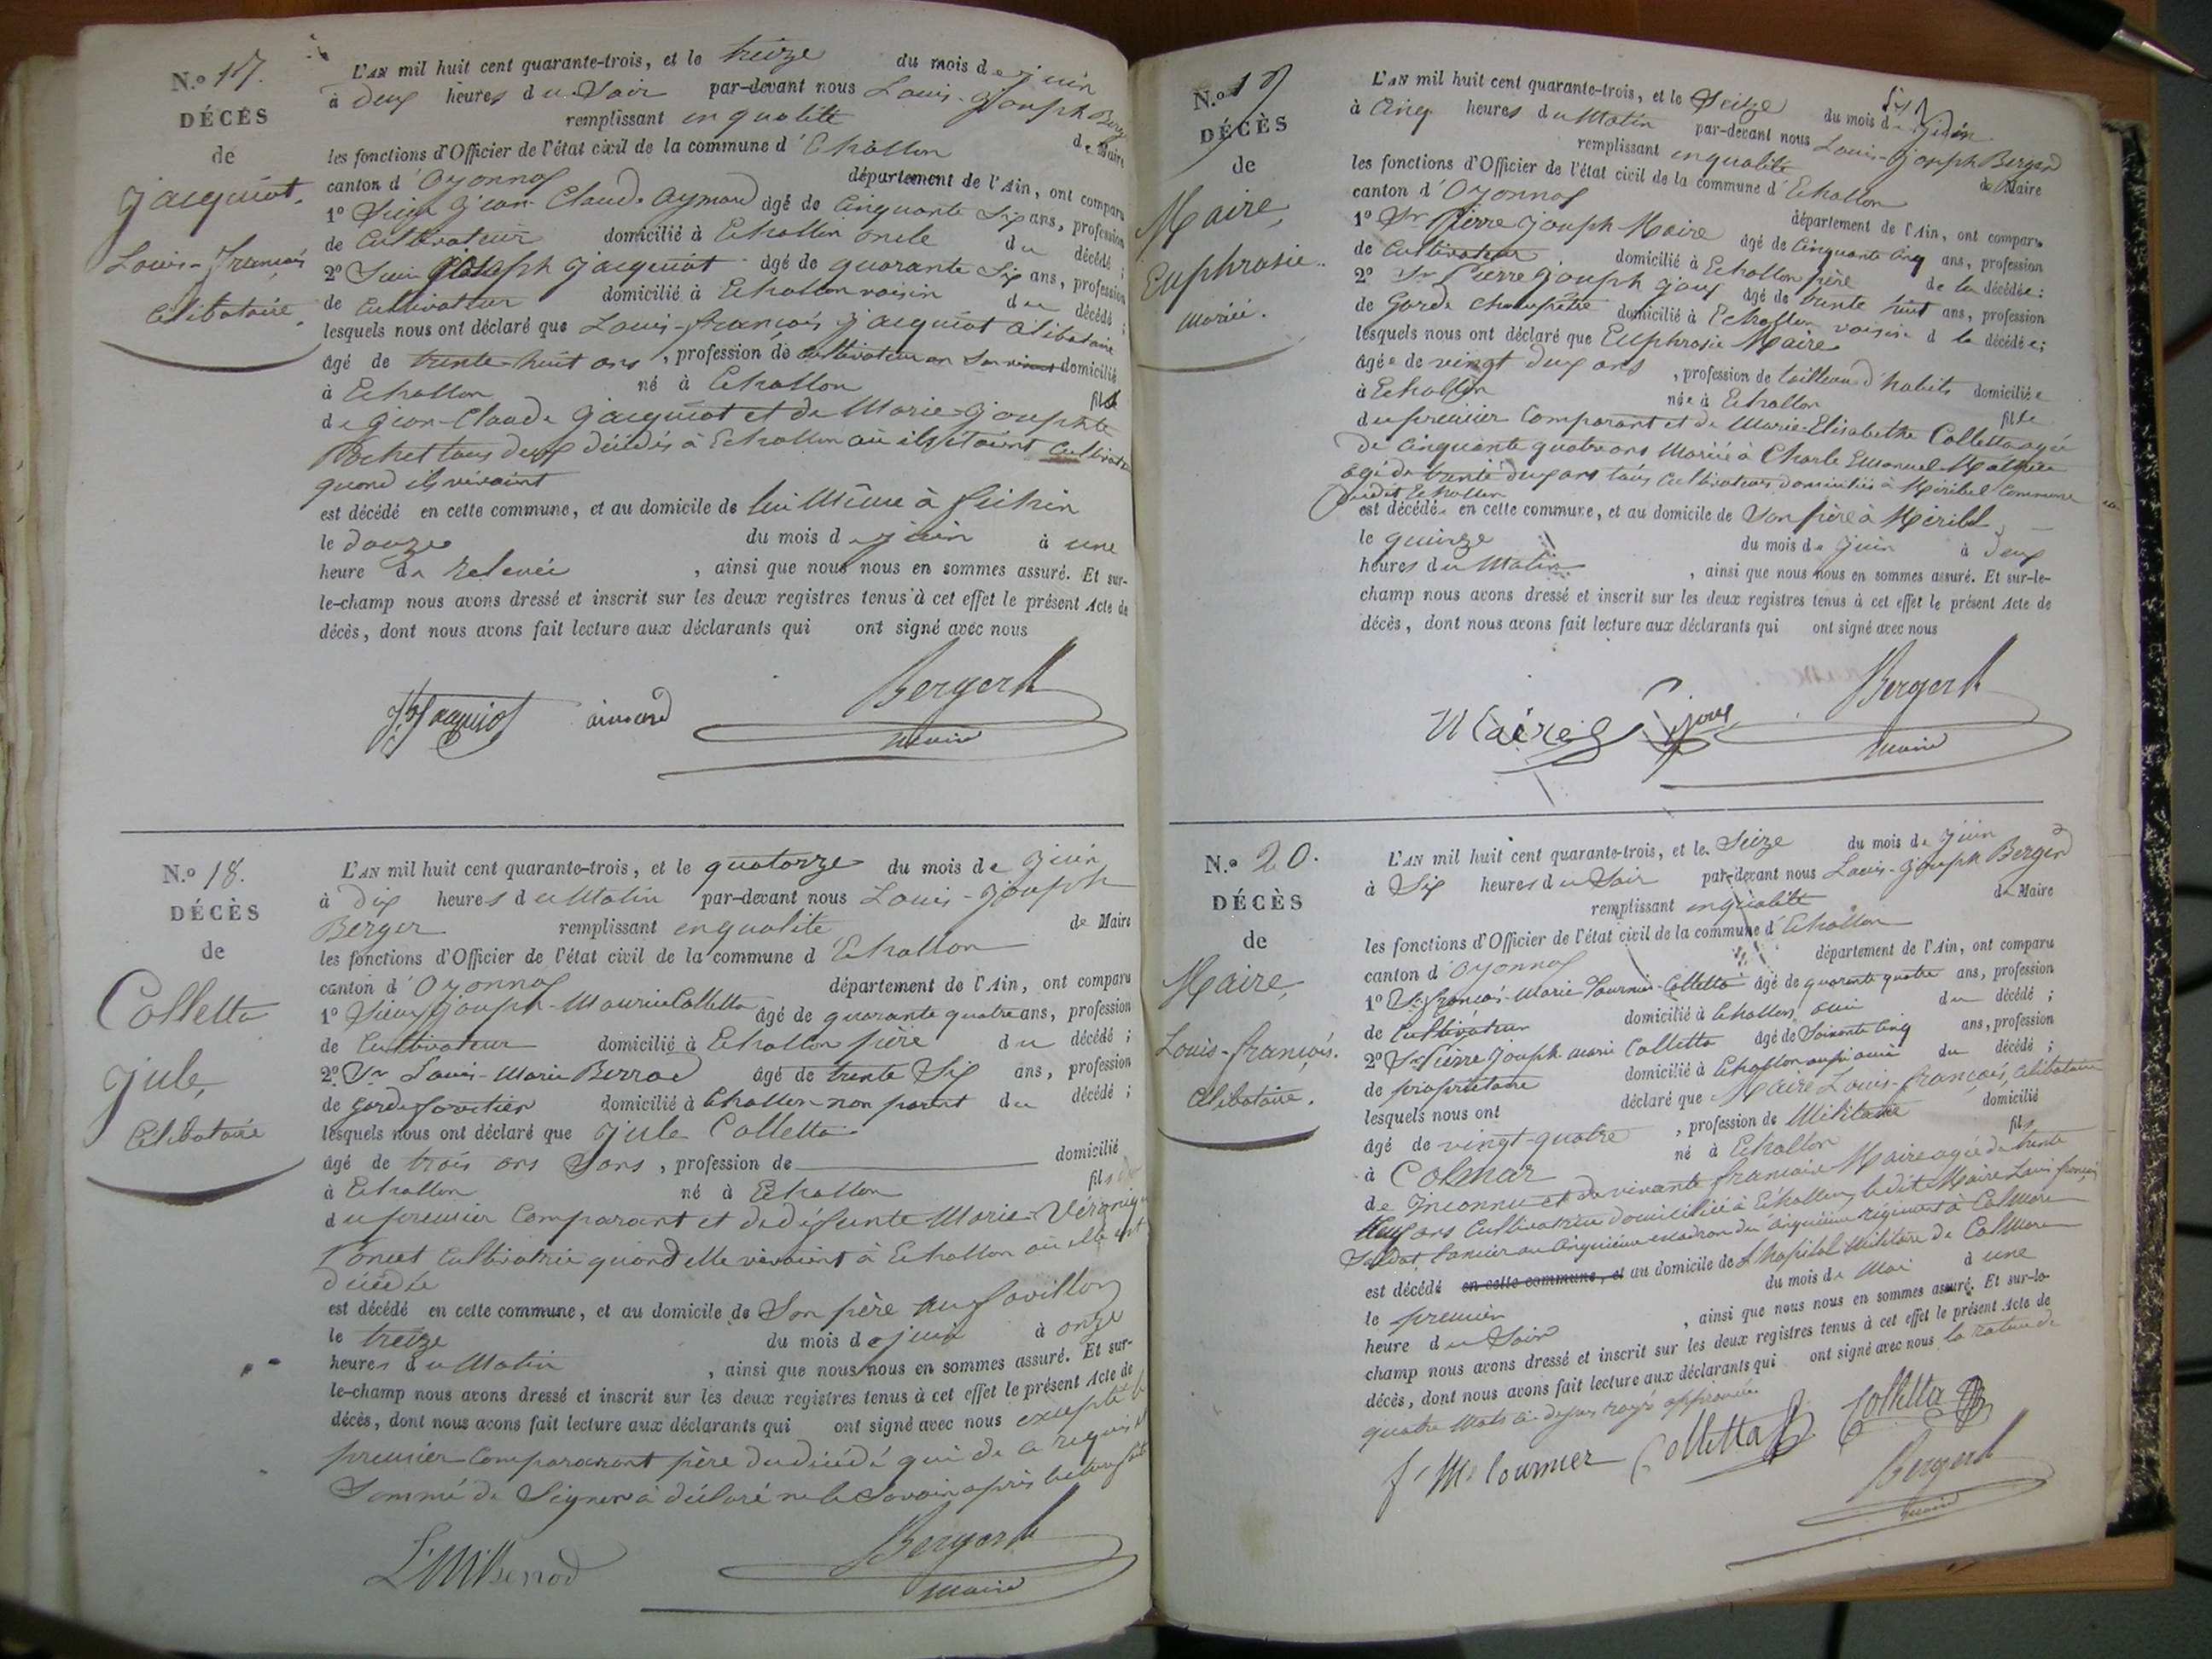 N.º 17.
DÉCÈS
de
Jacquiot,
Louis-françois
Célibataire.
L'AN mil huit cent quarante-trois, et le treize du mois de juin
à deux heures du Soir par-devant nous Louis-Joseph Berger
remplissant en qualité de Maire
les fonctions d'Officier de l'état civil de la commune d'Echallon
canton d'Oyonnax département de l'Ain, ont comparu
1º Sieur Jean Claude Aymard âgé de Cinquante Six ans, profession
de Cultivateur domicilié à Echallon oncle du décédé ;
2º Sieur Joseph Jacquiot âgé de quarante Six ans, profession
de Cultivateur domicilié à Echallon voisin du décédé ;
lesquels nous ont déclaré que Louis-françois Jacquiot Célibataire
âgé de trente-huit ans, profession de Cultivateur en Son vivant domicilié
à Echallon né à Echallon fils
de Jean-Claude Jacquiot et de Marie-Josephte
Pochet tous deux décédés à Echallon où ils étaient Cultivateurs
quand ils vivaient
est décédé en cette commune, et au domicile de lui Même à
le douze du mois de juin à une
heure de Relevée, ainsi que nous nous en sommes assuré. Et sur-
le-champ nous avons dressé et inscrit sur les deux registres tenus à cet effet le présent Acte de
décès, dont nous avons fait lecture aux déclarants qui ont signé avec nous
Jacquiot aimard Berger
maire
N.º 18.
DÉCÈS
de
Colletta
Jule,
Célibataire
L'AN mil huit cent quarante-trois, et le quatorze du mois de juin
à dix heures du Matin par-devant nous Louis-Joseph
Berger remplissant en qualité de Maire
les fonctions d'Officier de l'état civil de la commune d'Echallon
canton d'Oyonnax département de l'Ain, ont comparu
1º Sieur Joseph-Maurice Colletta âgé de quarante quatre ans, profession
de Cultivateur domicilié à Echallon père du décédé ;
2º Sr Louis-Marie Berrod âgé de trente Six ans, profession
de garde forestier domicilié à Echallon non parent du décédé ;
lesquels nous ont déclaré que Jule Colletta
âgé de trois ans Sans, profession de domicilié
à Echallon né à Echallon fils
du premier Comparant et de défunte Marie-Véronique
Poncet Cultivatrice quand elle vivait à Echallon où elle est
décédée
est décédé en cette commune, et au domicile de Son père au favillon
le treize du mois de juin à onze
heures du Matin, ainsi que nous nous en sommes assuré. Et sur-
le-champ nous avons dressé et inscrit sur les deux registres tenus à cet effet le présent Acte de
décès, dont nous avons fait lecture aux déclarants qui ont signé avec nous excepté le
premier Comparant père du décédé qui de ce requis et
Sommé de Signer à déclaré ne le Savoir après lecture faite
Berger
maire
N.º 19
DÉCÈS
de
Maire,
Euphrosie
mariée.
L'AN mil huit cent quarante-trois, et le Seize du mois de juin
à Cinq heures du Matin par-devant nous Louis-Joseph Berger
remplissant en qualité de Maire
les fonctions d'Officier de l'état civil de la commune d'Echallon
canton d'Oyonnax département de l'Ain, ont comparu
1º Sr Pierre Joseph Maire âgé de Cinquante Cinq ans, profession
de Cultivateur domicilié à Echallon père de la décédée ;
2º Sr Pierre Joseph Joux âgé de trente huit ans, profession
de Garde champêtre domicilié à Echallon voisin de la décédée ;
lesquels nous ont déclaré que Euphrosie Maire
âgée de vingt deux ans, profession de tailleuse d'habits domiciliée
à Echallon née à Echallon fille
du premier Comparant et de Marie-Elisabethe Colletta agée
de Cinquante quatre ans Mariée à Charle Emanuel
agé de trente deux ans tous Cultivateurs domiciliés à Méribel Commune
dudit Echallon
est décédée en cette commune, et au domicile de Son père à Méribel
le quinze du mois de juin à deux
heures du Matin, ainsi que nous nous en sommes assuré. Et sur-le-
champ nous avons dressé et inscrit sur les deux registres tenus à cet effet le présent Acte de
décès, dont nous avons fait lecture aux déclarants qui ont signé avec nous
Maire Joux Berger
maire
N.º 20.
DÉCÈS
de
Maire,
Louis-françois.
Célibataire.
L'AN mil huit cent quarante-trois, et le Seize du mois de juin
à Six heures du Soir par-devant nous Louis-Joseph Berger
remplissant en qualité de Maire
les fonctions d'Officier de l'état civil de la commune d'Echallon
canton d'Oyonnax département de l'Ain, ont comparu
1º Sr françois-Marie Tournier-Colletta âgé de quarante quatre ans, profession
de Cultivateur domicilié à Echallon, ami du décédé ;
2º Sr Pierre Joseph marie Colletta âgé de Soixante Cinq ans, profession
de propriétaire domicilié à Echallon aussi ami du décédé ;
lesquels nous ont déclaré que Maire Louis-françois, Célibataire
âgé de vingt-quatre, profession de Militaire domicilié
à Colmar né à Echallon fils
de Inconnu et de vivante francoise Maire agée de trente
neuf ans Cultivatrice domiciliée à Echallon, le dit Maire Louis françois
Soldat Lancier au Cinquième escadron du Cinquième régiment à Colmar
est décédé en cette commune, et au domicile de L'hôpital Militaire de Colmar
le premier du mois de Mai à une
heure du Soir, ainsi que nous nous en sommes assuré. Et sur-le-
champ nous avons dressé et inscrit sur les deux registres tenus à cet effet le présent Acte de
décès, dont nous avons fait lecture aux déclarants qui ont signé avec nous la rature de
quatre Mots ci-dessus rayé approuvée
f. M. tournier Colletta Colletta
Berger
maire